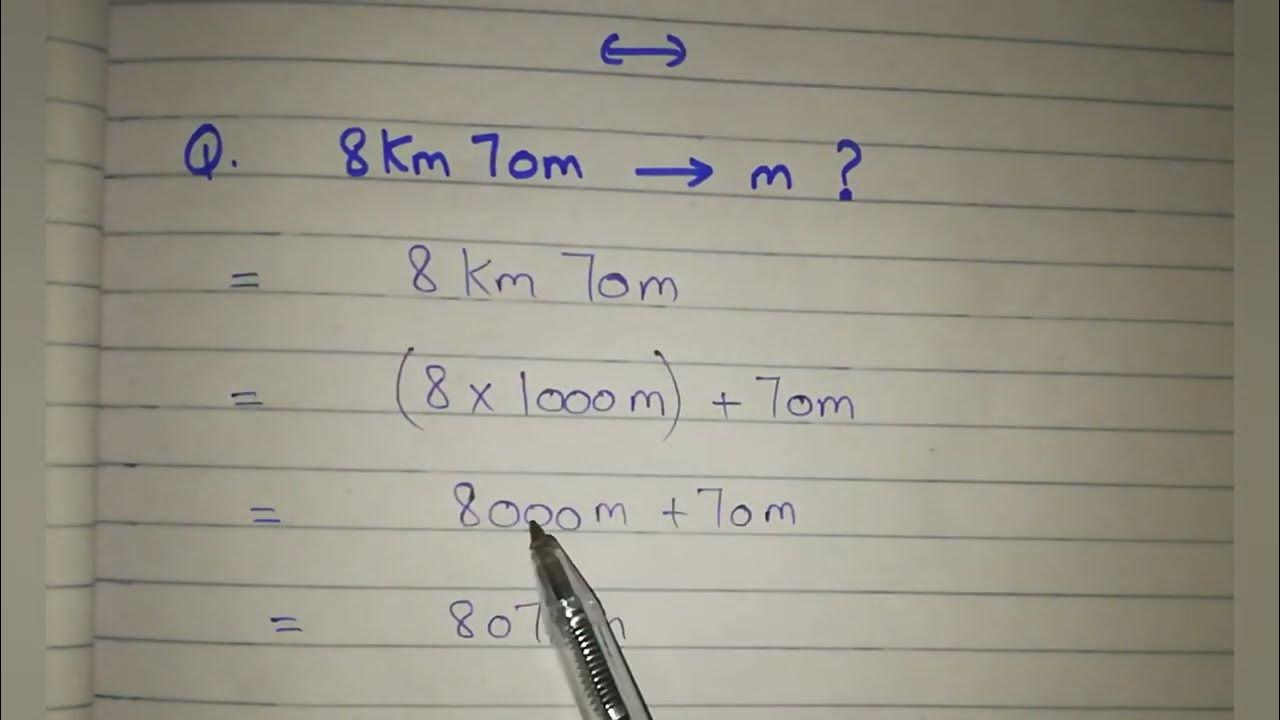 ↔
Q. 8Km 70m → m ?
= 8 Km 70m
= (8 x 1000 m) + 70m
= 8000m + 70m
= 807